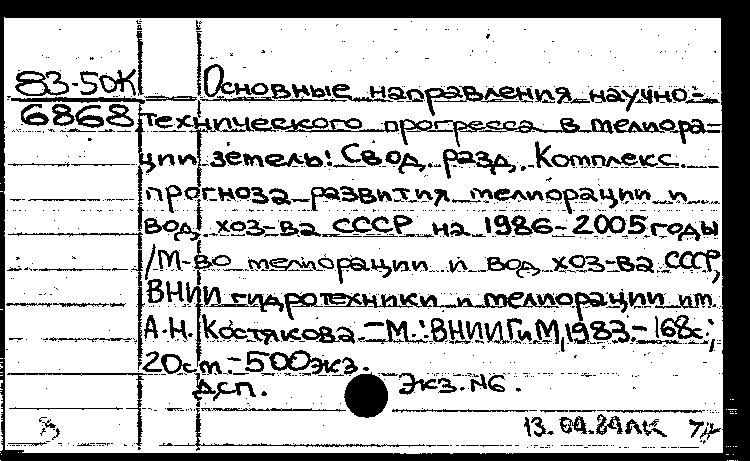 83-50К Основные направления научно-
6868 технического прогресса в мелиора=
ции земель: Свод. разд. Комплекс.
прогноза развития мелиорации и
вод. хоз-ва СССР на 1986-2005 годы
/М-во мелиорации и вод. хоз-ва СССР,
ВНИИ гидротехники и мелиорации им.
А.Н. Костякова.-М.: ВНИИГиМ, 1983.- 168с.;
20см.-500экз.
Дсп. Экз. №6.
13.04.84 ЛК